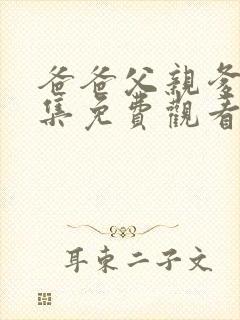 爸爸父親爹
集免費觀看
耳東二子文